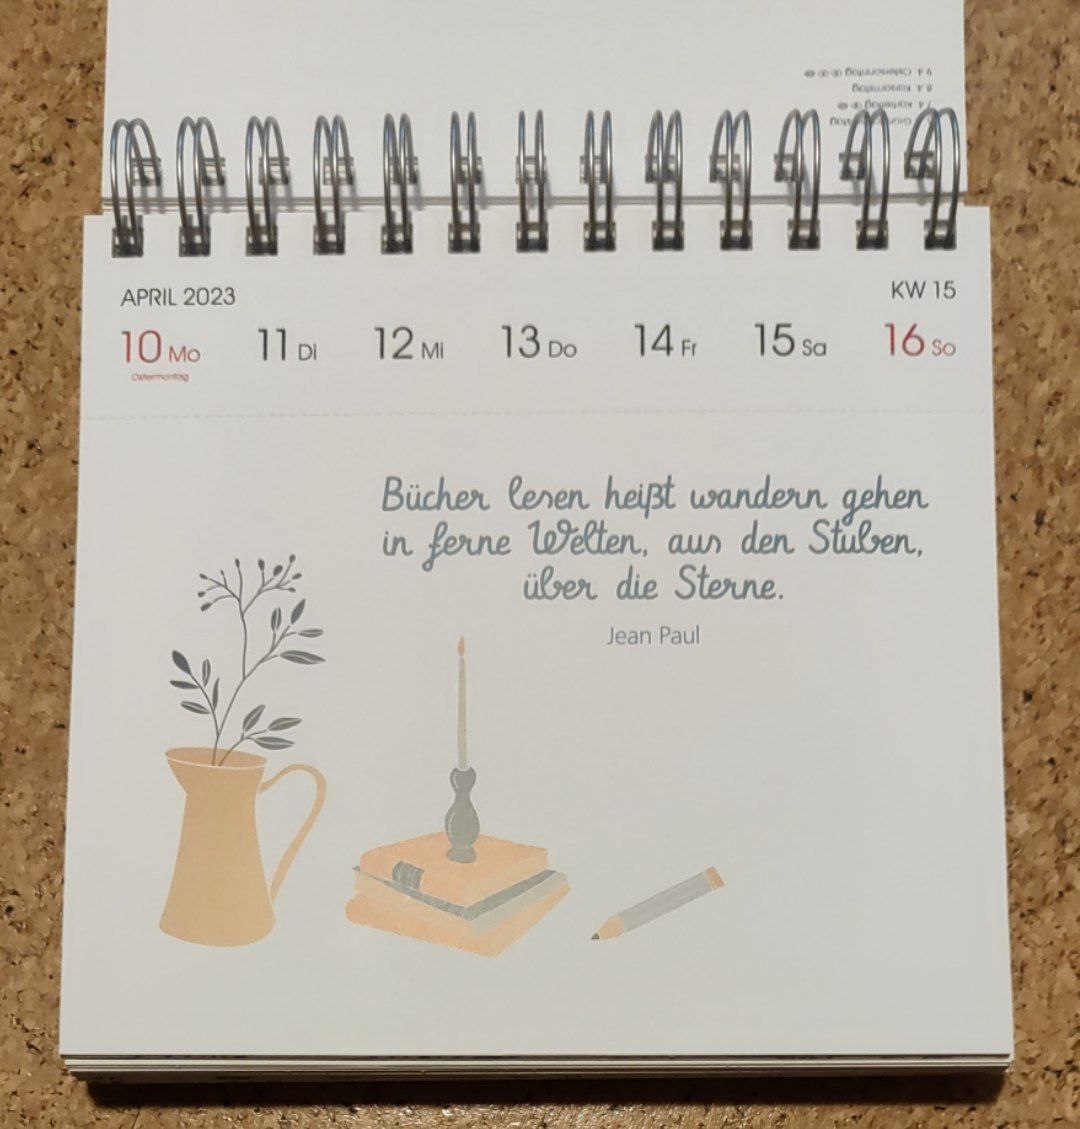 9.4. Ostersonntag
8.4. Karsamstag
7.4. Karfreitag
APRIL 2023 KW 15
10 Mo 11 Di 12 Mi 13 Do 14 Fr 15 Sa 16 So
Ostermontag
Bücher lesen heißt wandern gehen
in ferne Welten, aus den Stuben,
über die Sterne.
Jean Paul